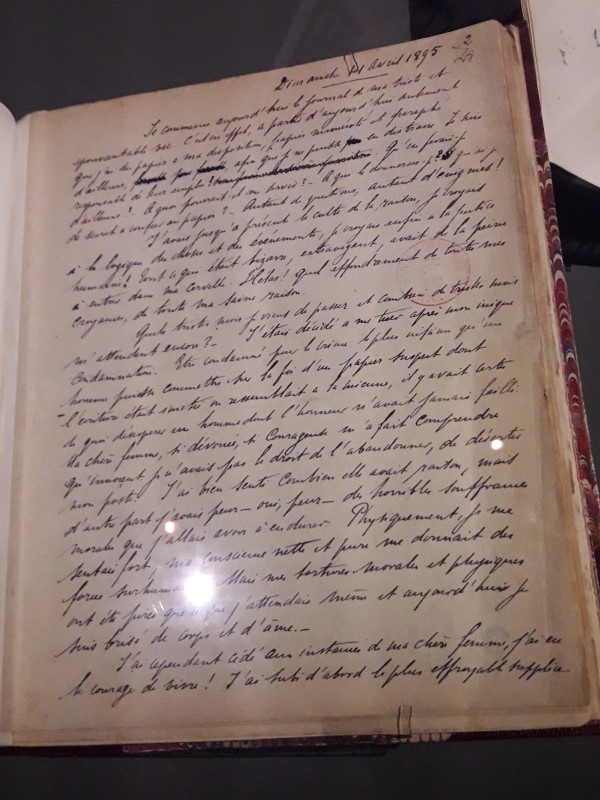 Dimanche 14 Avril 1895
2
Je commence aujourd'hui le journal de ma triste et
épouvantable vie. C'est en effet, à partir d'aujourd'hui seulement
que j'ai du papier à ma disposition, papier numéroté et paraphé
d'ailleurs, afin que je ne puisse en distraire. Je suis
responsable de son emploi! Qu'en ferais-je
d'ailleurs? A quoi pourrait-il me servir? A qui le donnerais-je? Qu'ai-je
de secret à confier au papier? Autant de questions, autant d'énigmes!
J'avais jusqu'à présent le culte de la raison, je croyais
à la logique des choses et des événements, je croyais enfin à la justice
humaine! Tout ce qui était bizarre, extravagant, avait de la peine
à entrer dans ma cervelle. Hélas! Quel effondrement de toutes mes
croyances, de toute ma saine raison.
Quels tristes mois je viens de passer et combien de tristes mois
m'attendent encore?
J'étais décidé à me tuer après mon inique
condamnation. Etre condamné pour le crime le plus infâme qu'un
homme puisse commettre sur la foi d'un papier suspect dont
l'écriture était imitée ou ressemblait à la mienne, il y avait certes
de quoi désespérer un homme dont l'honneur n'avait jamais failli.
Ma chère femme, si dévouée, si courageuse m'a fait comprendre
qu'innocent je n'avais pas le droit de l'abandonner, de déserter
mon poste. J'ai bien senti combien elle avait raison, mais
d'autre part j'avais peur — oui, peur — des horribles souffrances
morales que j'allais avoir à endurer. Physiquement, je me
sentais fort, ma conscience nette et pure me donnait des
forces surhumaines. Mais mes tortures morales et physiques
ont été pires que ce que j'attendais même et aujourd'hui je
suis brisé de corps et d'âme. —
J'ai cependant cédé aux instances de ma chère femme, j'ai eu
le courage de vivre! J'ai subi d'abord le plus effroyable supplice